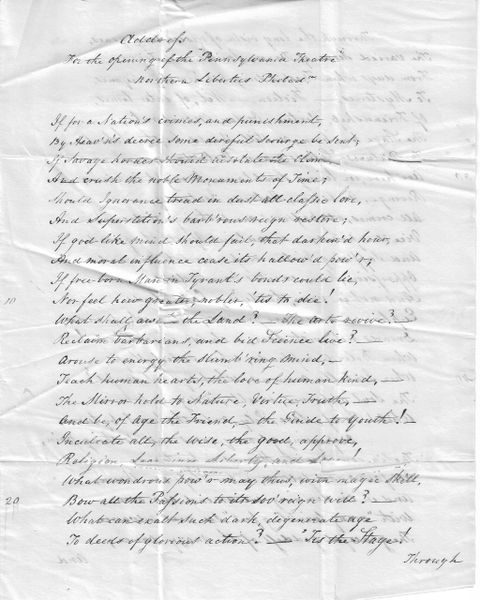 Address
For the opening of the "Pennsylvania Theatre"
Northern Liberties Philad.
If for a Nation's crimes, and punishment,
By Heav'n's decree some direful scourge be sent;
If Savage hordes should desolate its Clime,
And crush the noble Monuments of Time;
Should Ignorance tread in dust all classic lore,
And Superstition's barb'rous reign restore;
If god-like mind should fail, that darken'd hour,
And moral influence cease its hallow'd pow'r;
If free-born Man in Tyrant's bonds could lie,
10 Nor feel how greater, nobler, 'tis to die!
What shall the Land? — The Arts revive? —
Reclaim barbarians, and bid Science live? —
Arouse to energy the slumb'ring mind, —
Teach human hearts, the love of human kind, —
The Mirror hold to Nature, Virtue, Truth, —
And be, of Age the Friend, — the Guide to Youth! —
Inculcate all, the Wise, the good, approve,
Religion, and
What wondrous pow'r may thus, with magic skill,
20 Bow all the Passions to its sov'reign will? —
What can exalt such dark, degenerate age
To deeds of glorious action? — 'Tis the Stage!
Through